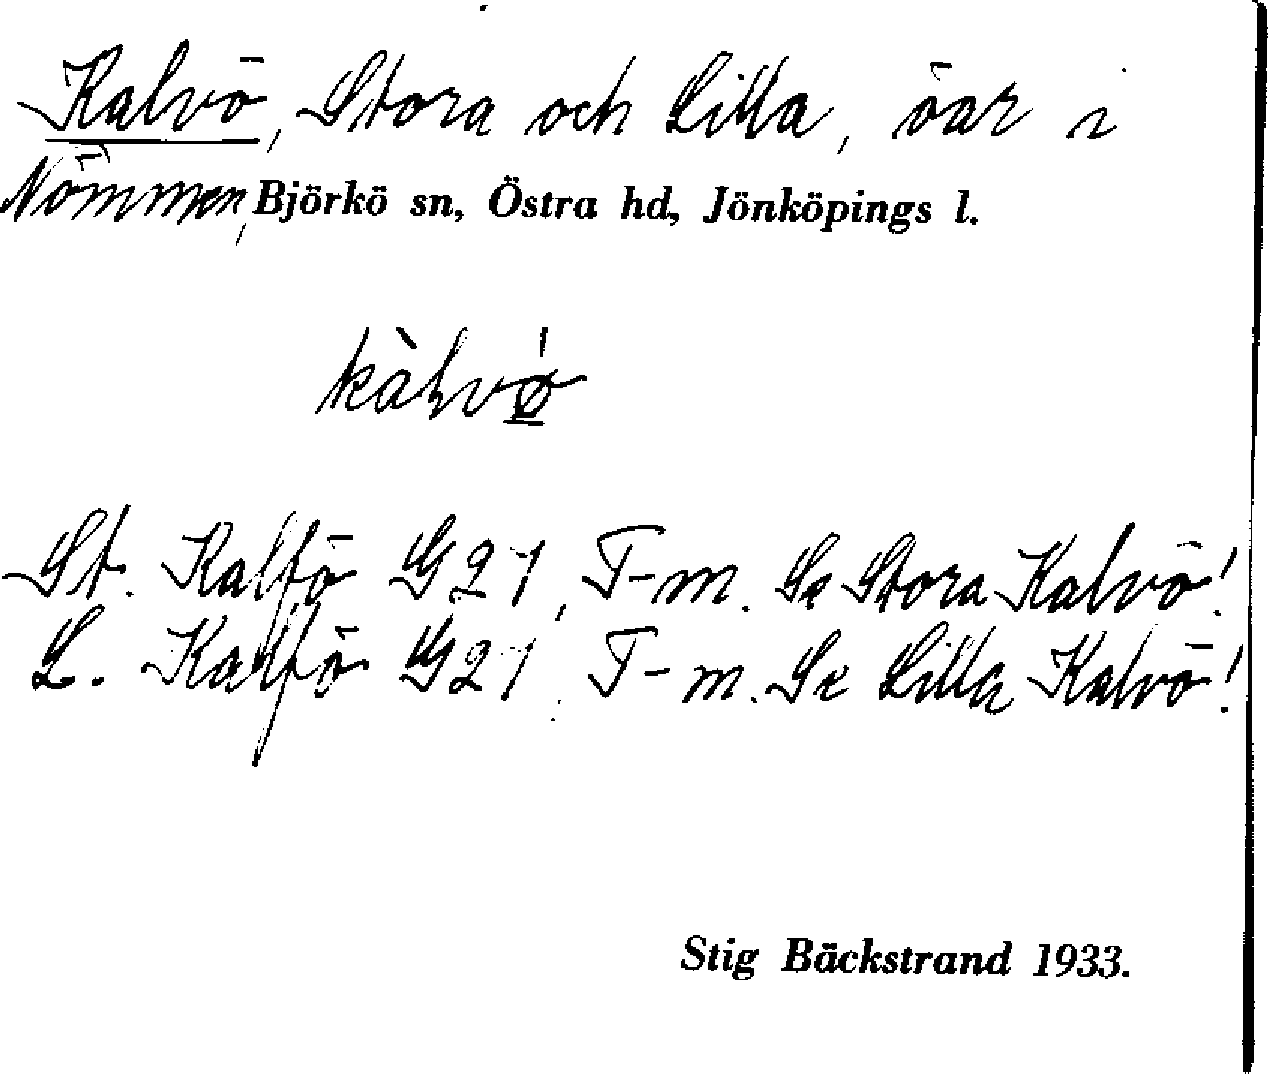 Kalvö, Stora och Lilla, öar i
Nömmen, Björkö sn, Östra hd, Jönköpings l.
kàlvǿ̲
St. Kalfö G21, T-m. Se Stora Kalvö!
L. Kalfö G21, T-m. Se Lilla Kalvö!
Stig Bäckstrand 1933.